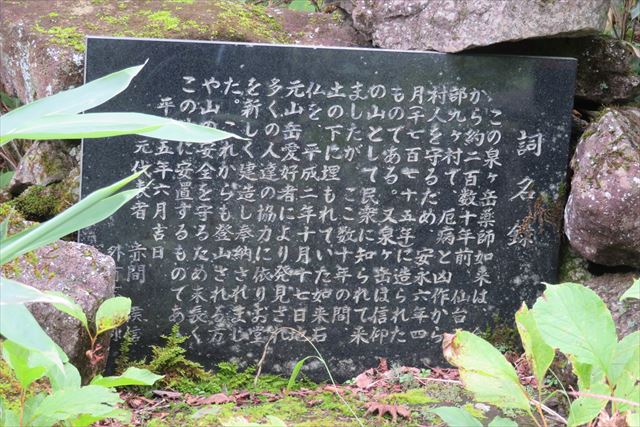 詞名録
この泉ヶ岳薬師如来は
から約二百数十年前 仙台
部九ヶ村で 厄病と凶作から
村人を守るため 安永六年四
月千七百七十五年に造られた
ものである。又泉ヶ岳は信仰
の山として民衆に知られて来
ましたが ここ数十年の間
土の下に埋もれていた如来石
仏を 平成二年十月十七日地
元山岳愛好者により発見され
多くの人達の協力に依りお堂
を新しく建造し奉納されまし
た。これからも登山される方
や山の安全を守るため末長く
この地に安置するものであ
平成五年六月吉日
元代表者 赤間
外